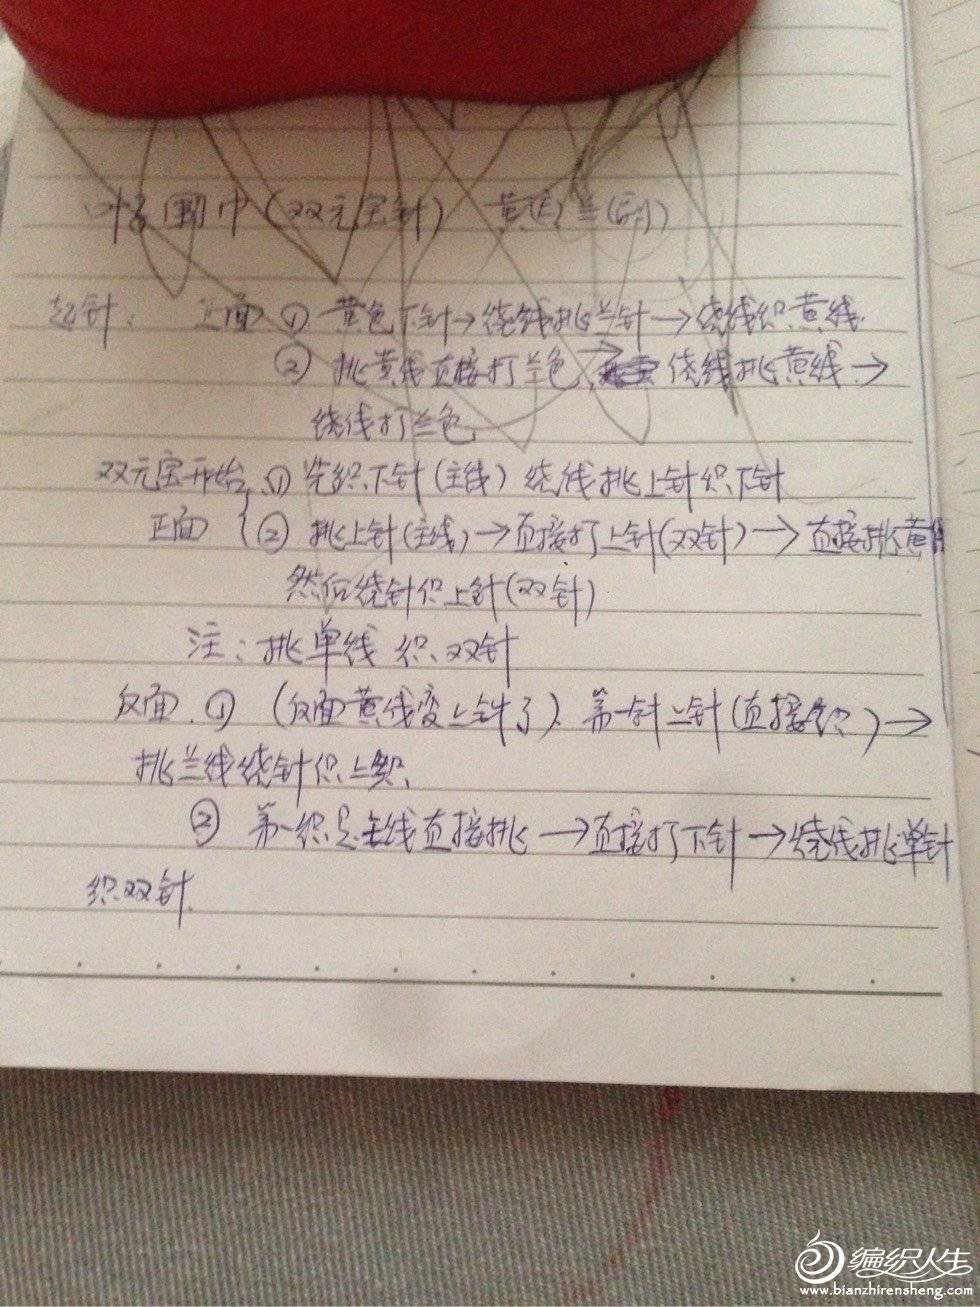 叶子围巾(双元宝针) 黄(主)兰(副)
起针: 正面 ① 黄色下针→绕线挑兰针→绕线织黄线.
② 挑黄线直接打兰色→绕线挑黄线→
绕线打兰色
双元宝开始、① 先织下针(主线) 绕线挑上针织下针
正面 ② 挑上针(主线)→直接打上针(双针)→直接挑黄
然后绕针织上针(双针)
注:挑单线 织双针
反面. ① (反面黄线变上针了). 第一针上针(直接织)→
挑兰线绕针织上
② 第一织是主线直接挑→直接打下针→绕线挑单针
织双针.
编织人生
www.bianzhirensheng.com